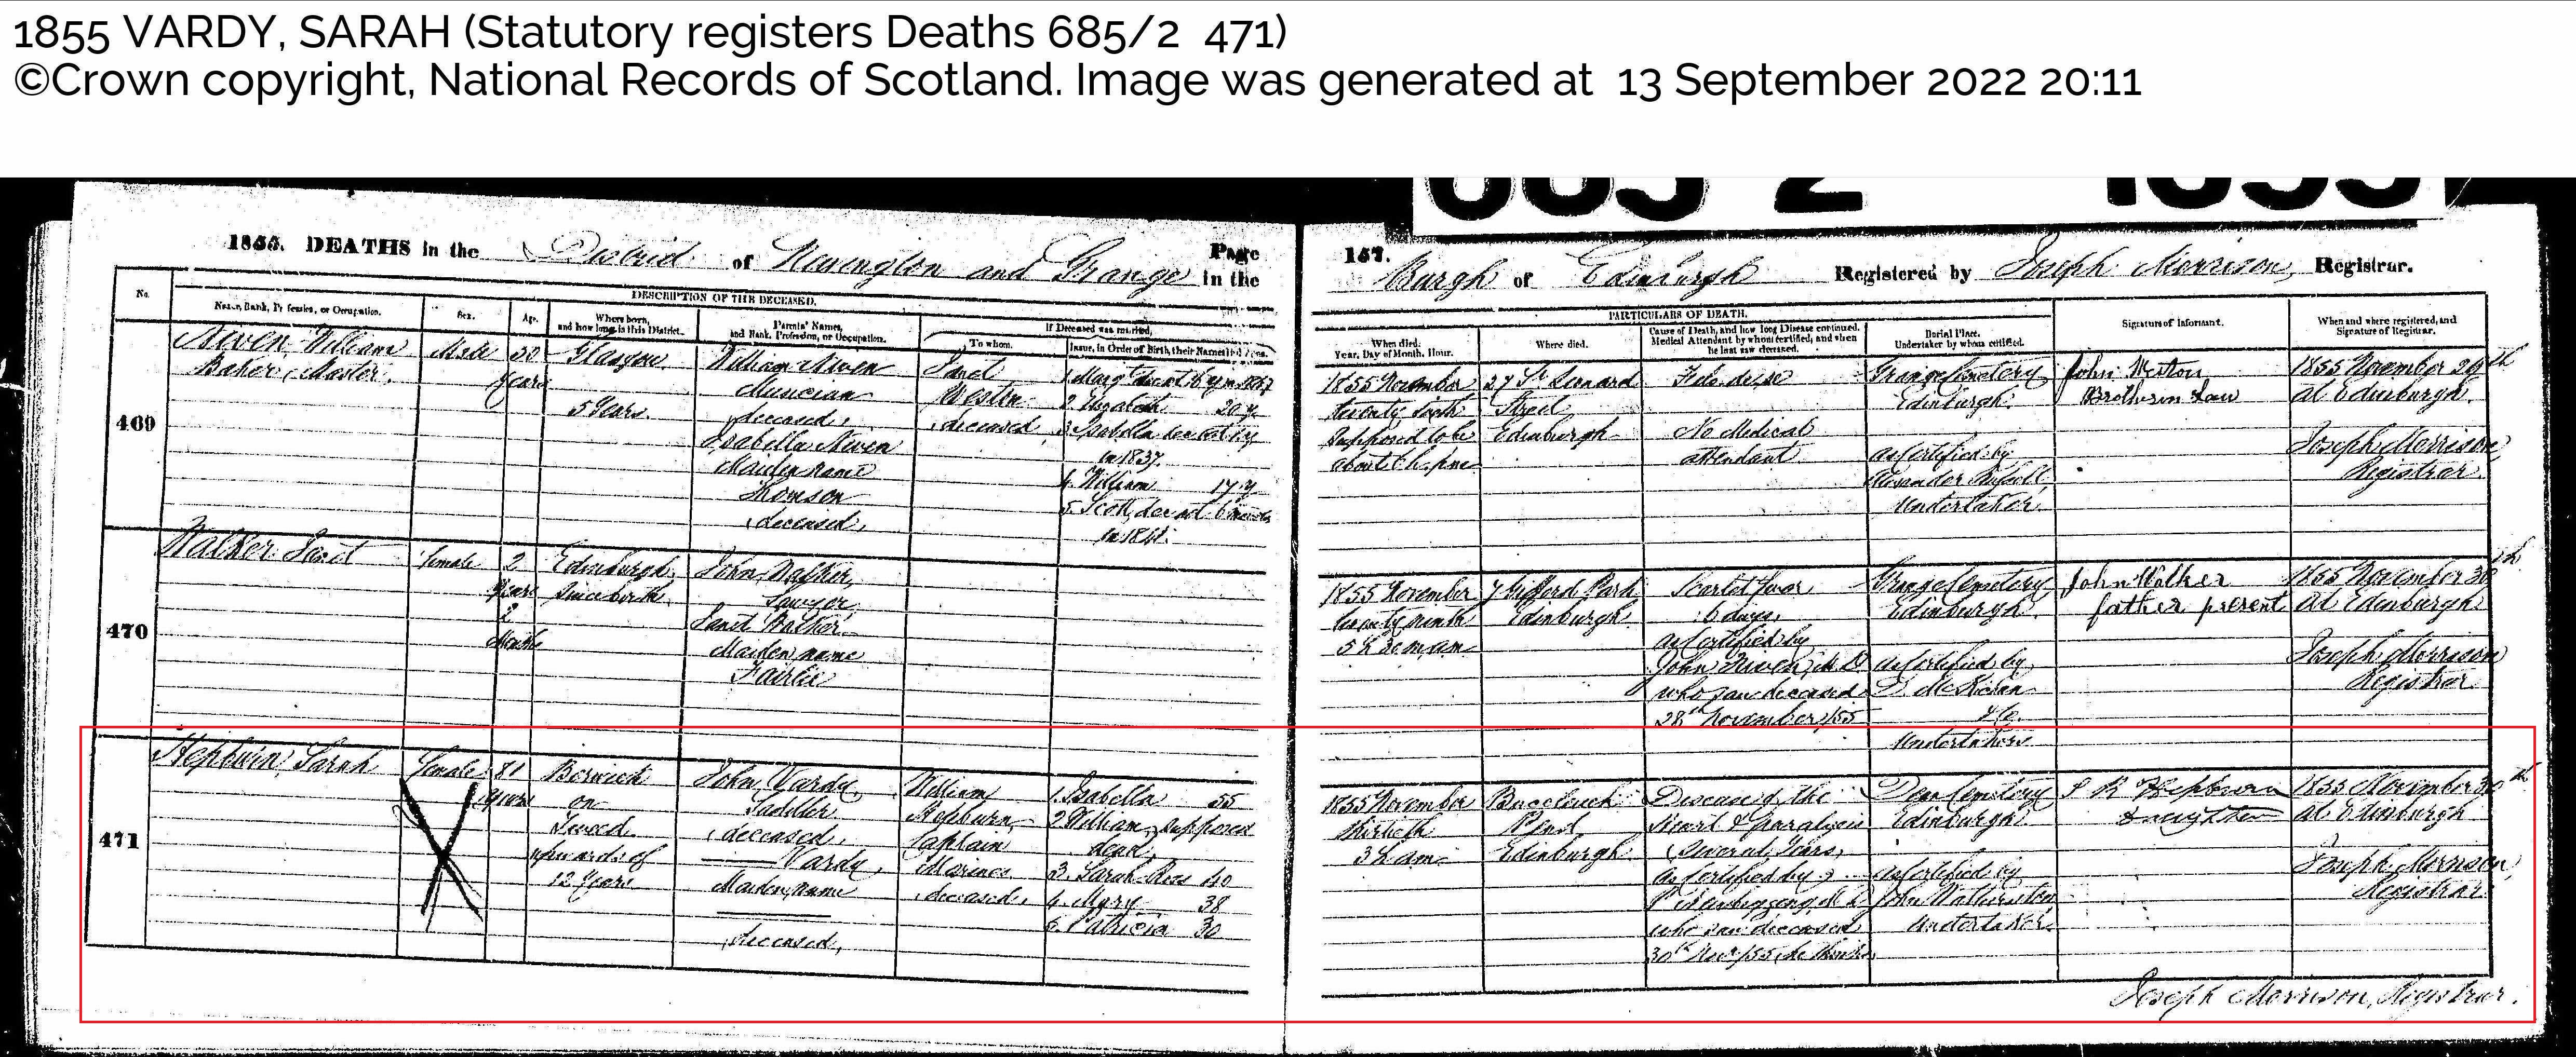 1855 VARDY, SARAH (Statutory registers Deaths 685/2 471)
©Crown copyright, National Records of Scotland. Image was generated at 13 September 2022 20:11
685 2 1855
1855. DEATHS in the District of Newington and Grange Page in the
157. Burgh of Edinburgh Registered by Joseph Morrison, Registrar.
No.
DESCRIPTION OF THE DECEASED.
Name, Rank, Profession, or Occupation.
Sex.
Age.
Where born,
and how long in this District.
Parents' Names,
and Rank, Profession, or Occupation.
If Deceased was married,
To whom.
Issue, in Order of Birth, their Names and Ages.
PARTICULARS OF DEATH.
When died.
Year, Day of Month, Hour.
Where died.
Cause of Death, and how long Disease continued.
Medical Attendant by whom certified, and when
he last saw deceased.
Burial Place.
Undertaker by whom certified.
Signature of Informant.
When and where registered, and
Signature of Registrar.
469
Niven, William
Baker, Master.
Male
50
Years
Glasgow
5 Years
William Niven
Musician
deceased,
Isabella Niven
Maiden name
Thomson
deceased,
Janet
Weston
deceased
1. Margt
2. Elizabeth 20 y
3. Isabella
in 1837.
4. William 17 y
5. Scott,
in 1841.
1855 November
twenty sixth
supposed to be
about 6 h. pm
27 St Leonard
Street
Edinburgh
Felo de se
No Medical
attendant
Grange Cemetery
Edinburgh.
as certified by
Alexander
Undertaker
John Weston
Brother in Law
1855 November 29th
at Edinburgh.
Joseph Morrison
Registrar.
470
Walker Janet
Female
2
Years
2
Months
Edinburgh
Since birth
John Walker,
Sawyer
Janet Walker
Maiden name
Fairlie
1855 November
twenty ninth
5 h 30 m am
7 Gifford Park
Edinburgh
Scarlet fever
6 days,
as certified by
John Niven, M D
who saw deceased
28th November /55
Grange Cemetery
Edinburgh.
as certified by
Undertakers
John Walker
father present
1855 November 30th
at Edinburgh
Joseph Morrison
Registrar
471
Hepburn, Sarah
Female
81
Years
Berwick
on
Tweed
upwards of
12 Years
John Vardy,
Saddler
deceased,
Vardy,
Maiden name
deceased,
William
Hepburn,
Captain
Marines
deceased,
1. Isabella 55
2 William, supposed
dead,
3. Sarah Ross 40
4. Mary 38
5. Patricia 30
1855 November
thirtieth
3 h am
Buccleuch
Pend,
Edinburgh
Disease of the
Heart & paralysis
Several Years,
as certified by
who saw deceased
30th Novr /55
Dean Cemetery
Edinburgh
as certified by
John
Undertaker.
S R Hepburn
Daughter
1855 November 30th
at Edinburgh
Joseph Morrison,
Registrar
Joseph Morrison, Registrar.